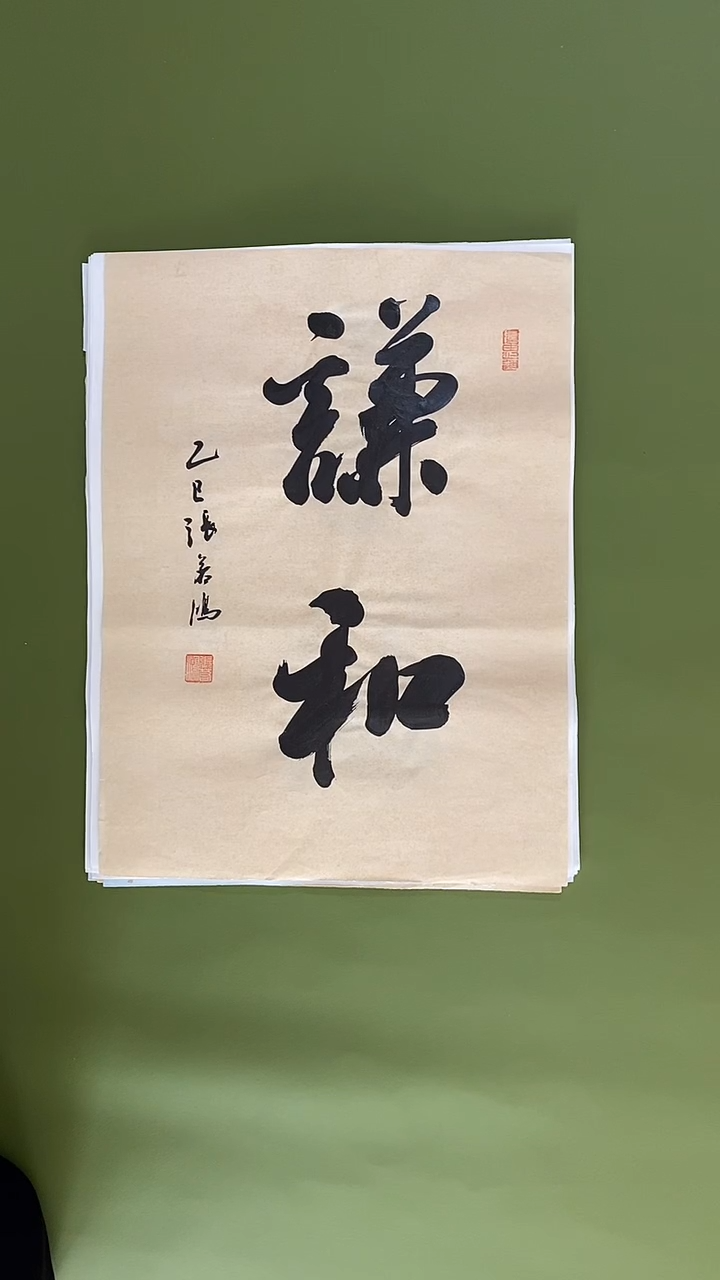 謙和
乙巳張若鴻